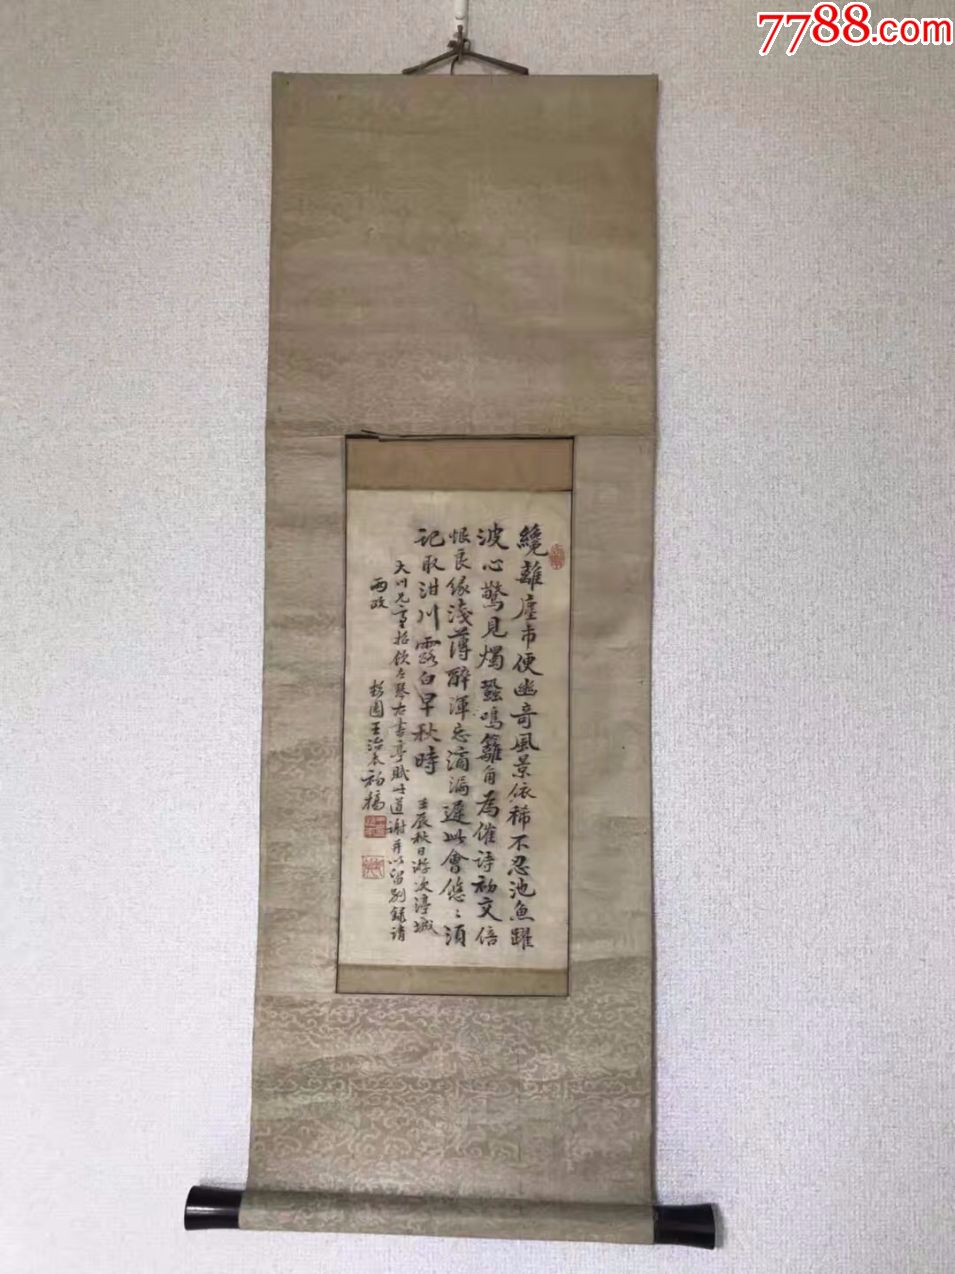 7788.com
纔離塵市便幽奇風景依稀不忍池魚躍
波心驚見燭蛩鳴籬角為催詩初交倍
恨良緣淺薄醉渾忘滴漏遲此會悠〻須
記取泔川露白早秋時
壬辰秋日游次淳城
大川兄臺招飲左琴右書亭賦此道謝并以留別錄請
兩政
王治本初稿